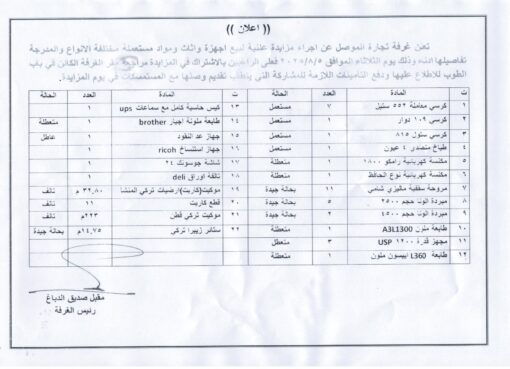 (( اعلان ))
تعلن غرفة تجارة الموصل عن اجراء مزايدة علنية لبيع اجهزة واثاث ومواد مستعملة مختلفة الانواع والمدرجة
تفاصيلها ادناه وذلك يوم الثلاثاء الموافق فعلى الراغبين بالاشتراك في المزايدة الغرفة الكائن في باب
الطوب للاطلاع عليها ودفع التأمينات اللازمة للمشاركة التي يتطلب تقديم وصلها مع المستمسكات في يوم المزايدة.
ت المادة العدد الحالة ت المادة العدد الحالة
١ كرسي معاملة ٥٥٢ ستيل ٧ مستعمل ١٣ كيس حاسبة كامل مع سماعات ups ١
٢ كرسي ١٠٩ دوار ١ مستعمل ١٤ طابعة ملونة brother ١ متعطلة
٣ كرسي ستول ٨١٥ ١ مستعمل ١٥ جهاز عد النقود ١ عاطل
٤ طباخ منضدي ٤ عيون ١ مستعمل ١٦ جهاز استنساخ ricoh ١
٥ مكنسة كهربائية رامكو ١٨٠٠ ١ متعطلة ١٧ شاشة ٢٤ ١
٦ مكنسة كهربائية نوع الحافظ ١ متعطلة ١٨ اوراق deli ١
٧ مروحة سقفية ماليزي شامي ١١ بحالة جيدة ١٩ موكيت(كاربت)ارضيات تركي المنشا ٣٢,٨٠ م تالف
٨ مبردة الونا حجم ٢٥٠٠ ٥ بحالة جيدة ٢٠ قطع كاربت ١١ تالف
٩ مبردة الونا حجم ٤٥٠٠ ٢ بحالة جيدة ٢١ موكيت تركي قطن ٢٢٣م تالف
١٠ طابعة ملون A3L1300 ١ متعطلة ٢٢ ستائر زيبرا تركي ١٤,٧٥م بحالة جيدة
١١ مجهز قدرة ١٢٠٠ USP ٣ متعطل
١٢ طابعة L360 ابيسون ملون ١ متعطلة
مقبل صديق الدباغ
رئيس الغرفة